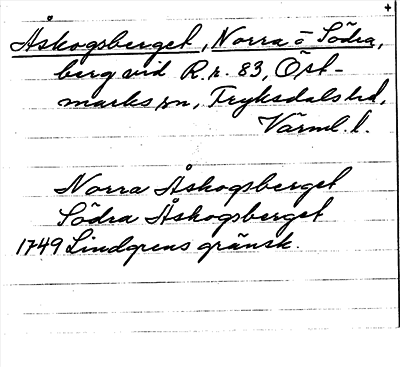 +
Åskogsberget, Norra o Södra,
berg vid R.r. 83, Öst-
marks sn, Fryksdals hd,
Värml. l.
Norra Åskogsberget
Södra Åskogsberget
1749 Lindgrens gränsk.